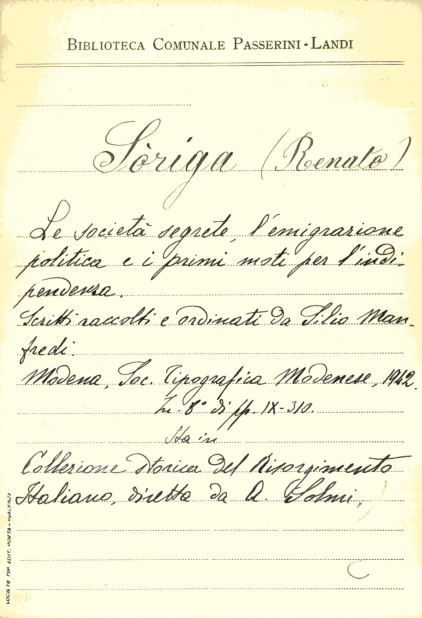 BIBLIOTECA COMUNALE PASSERINI-LANDI
Sòriga (Renato)
Le società segrete, l'emigrazione
politica e i primi moti per l'indi-
pendenza.
Scritti raccolti e ordinati da Silio Man-
fredi.
Modena, Soc. Tipografica Modenese, 1942.
In-8° di pp. IX-310.
Sta in
Collezione storica del Risorgimento
Italiano, diretta da A. Solmi,